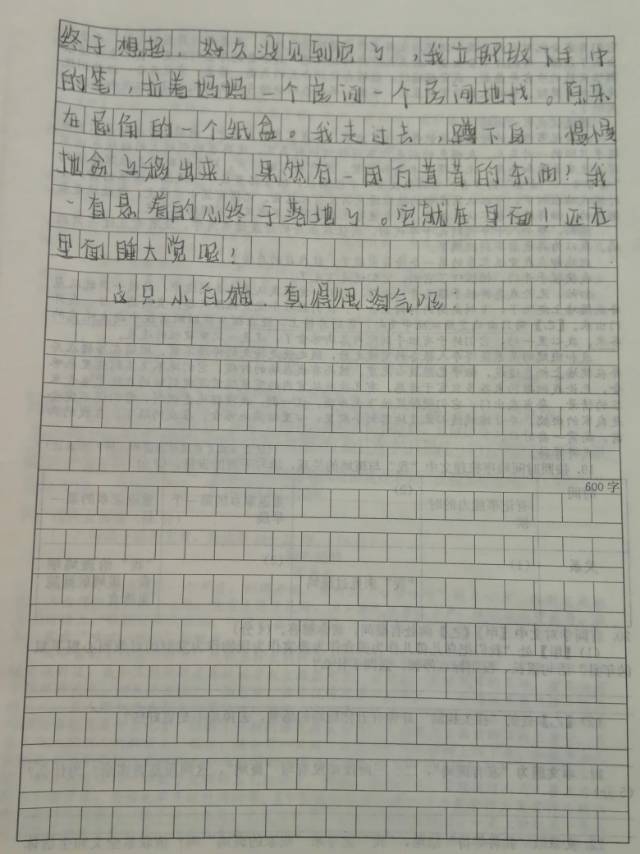 终于想起，好久没见到它了，我立即放下手中
的笔，拉着妈妈一个房间一个房间地找。原来
在房角的一个纸盒。我走过去，蹲下身，慢慢
地盒子移出来，果然有一团白茸茸的东西！我
一直悬着的心终于落地了。它就在里面！正在
里面睡大觉呢！
这只小白猫，真得很淘气呢！
600字